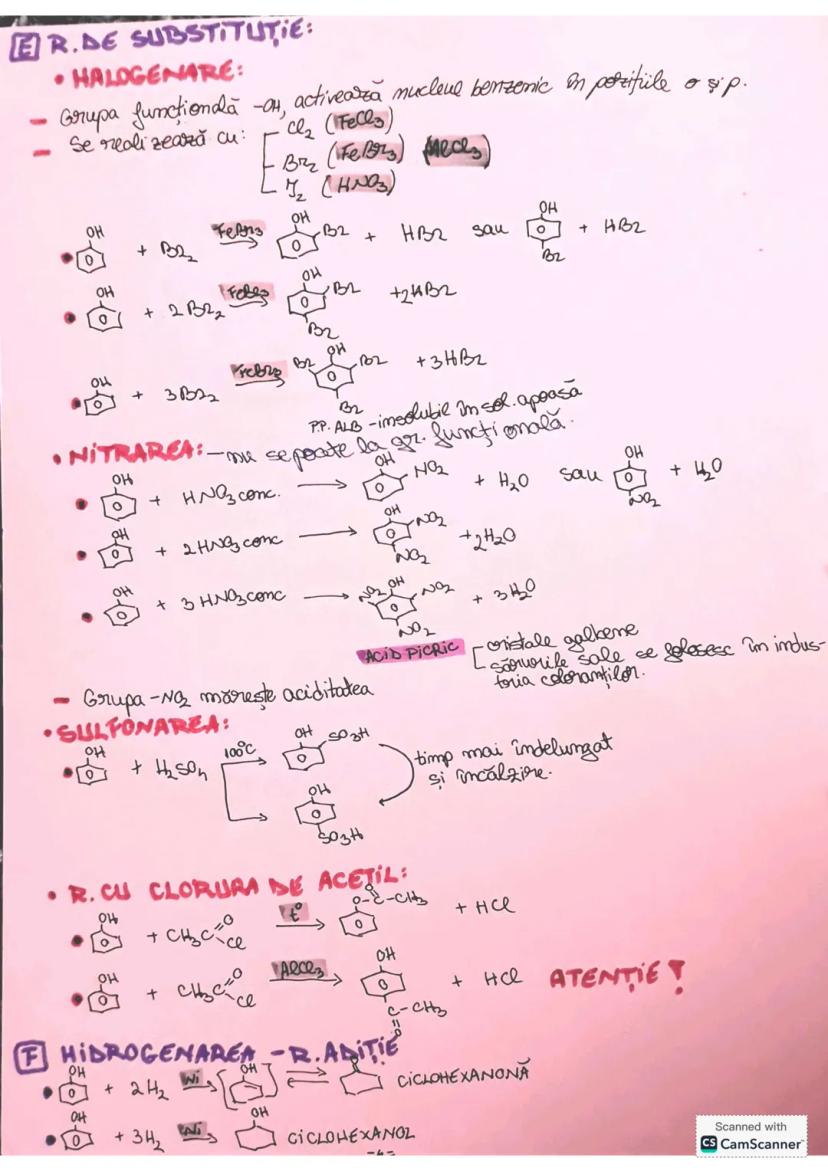 E R. DE SUBSTITUȚIE:
• HALOGENARE:
- Grupa funcțională -OH, activează nucleul benzenic în pozițiile o și p.
- Se realizează cu: Cl2 (FeCl3)
Br2 (FeBr3) (AlCl3)
I2 (HNO3)
• OH + Br2 FeBr3 → OH Br + HBr sau OH Br + HBr
• OH + 2Br2 → OH Br Br + 2HBr
• OH + 3Br2 FeBr3 → Br OH Br Br + 3HBr
P.P. ALB - insolubil în sol. apoasă
• NITRAREA: - nu se poate la gr. funcțională.
• OH + HNO3 conc. → OH NO2 + H2O sau OH NO2 + H2O
• OH + 2HNO3 conc → OH NO2 NO2 + 2H2O
• OH + 3HNO3 conc → NO2 OH NO2 NO2 + 3H2O
ACID PICRIC cristale galbene
sărurile sale se folosesc în indus-
tria coloranților.
- Grupa -NO2 mărește aciditatea
• SULFONAREA:
• OH + H2SO4 100°C → OH SO3H
OH SO3H
timp mai îndelungat
și încălzire.
• R. CU CLORURA DE ACETIL:
• OH + CH3C=O Cl t° → O-C-CH3 O + HCl
• OH + CH3C=O Cl AlCl3 → OH C-CH3 O + HCl ATENȚIE!
F HIDROGENAREA - R. ADIȚIE
• OH + 2H2 Ni → [OH] ⇌ O CICLOHEXANONĂ
• OH + 3H2 Ni → OH CICLOHEXANOL
Scanned with
CS CamScanner